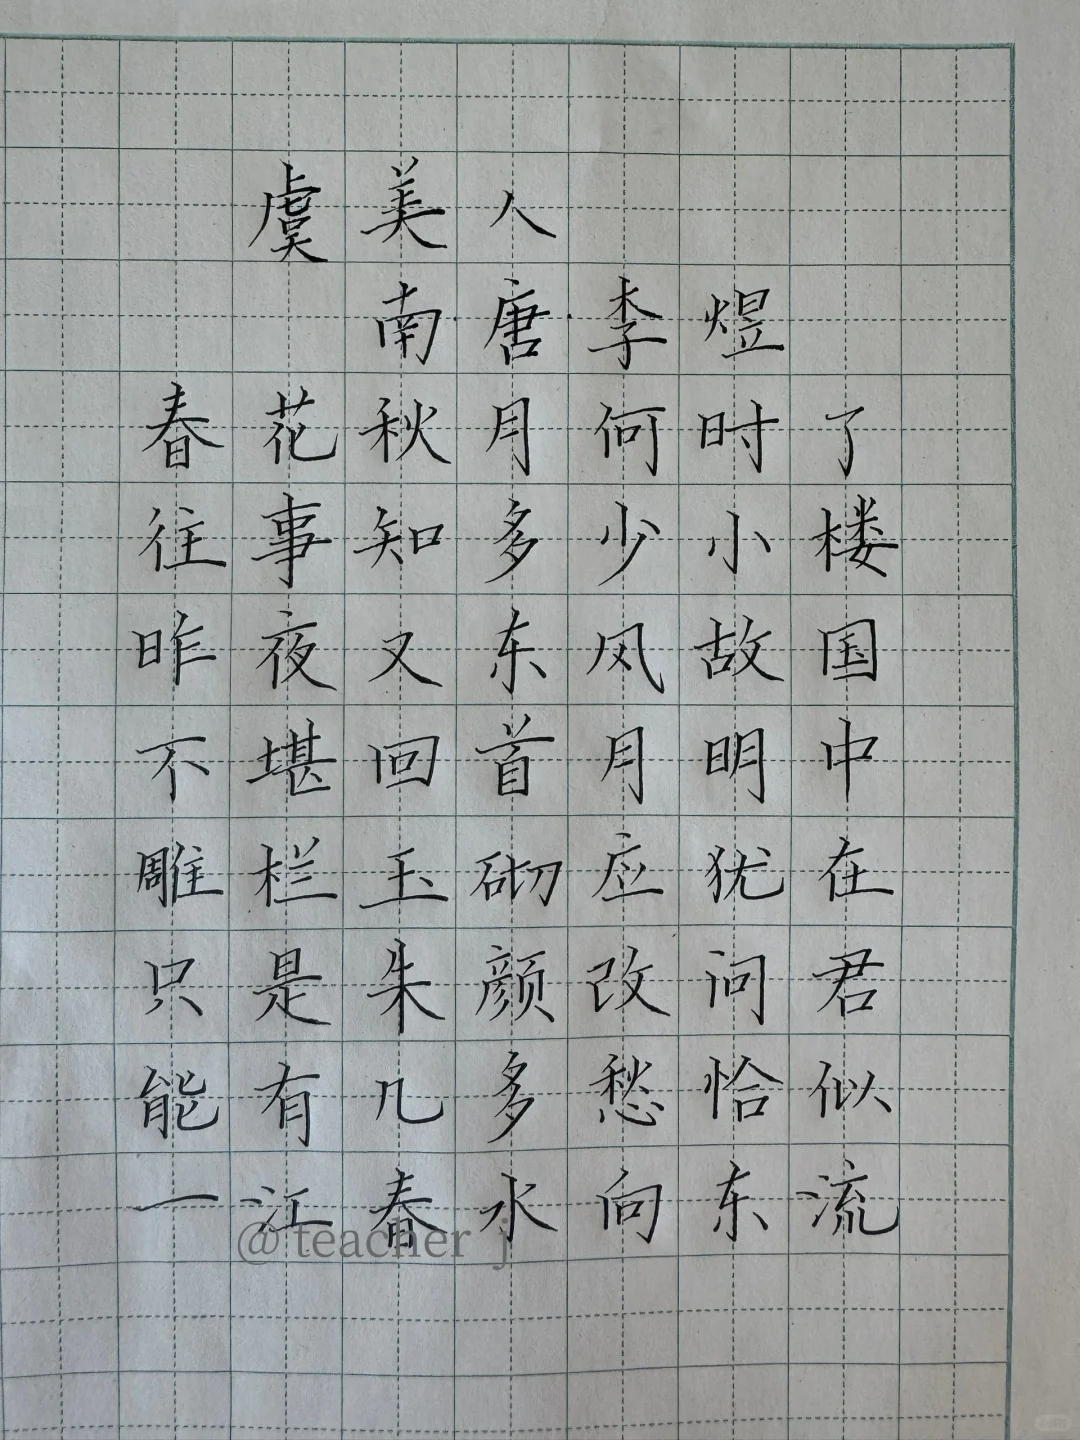 虞美人
南唐·李煜
春花秋月何时了
往事知多少小楼
昨夜又东风故国
不堪回首月明中
雕栏玉砌应犹在
只是朱颜改问君
能有几多愁恰似
一江春水向东流
@teacher j